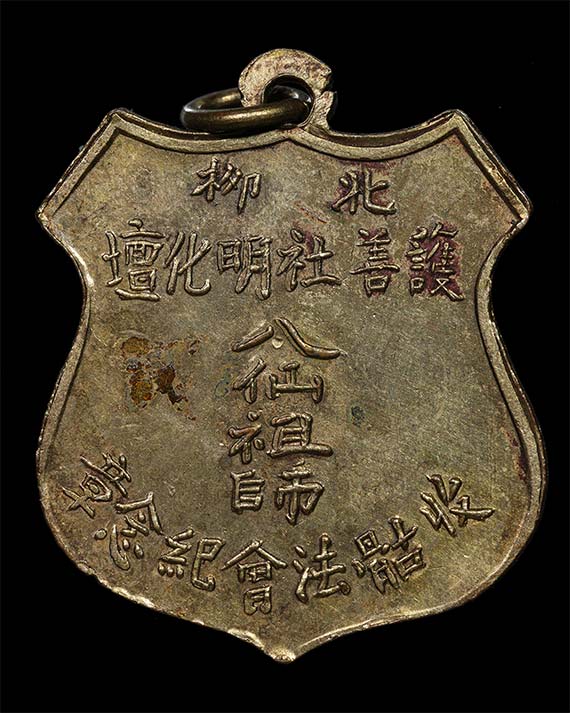 北柳
護善社明化壇
八仙祖師
收骷法會紀念章